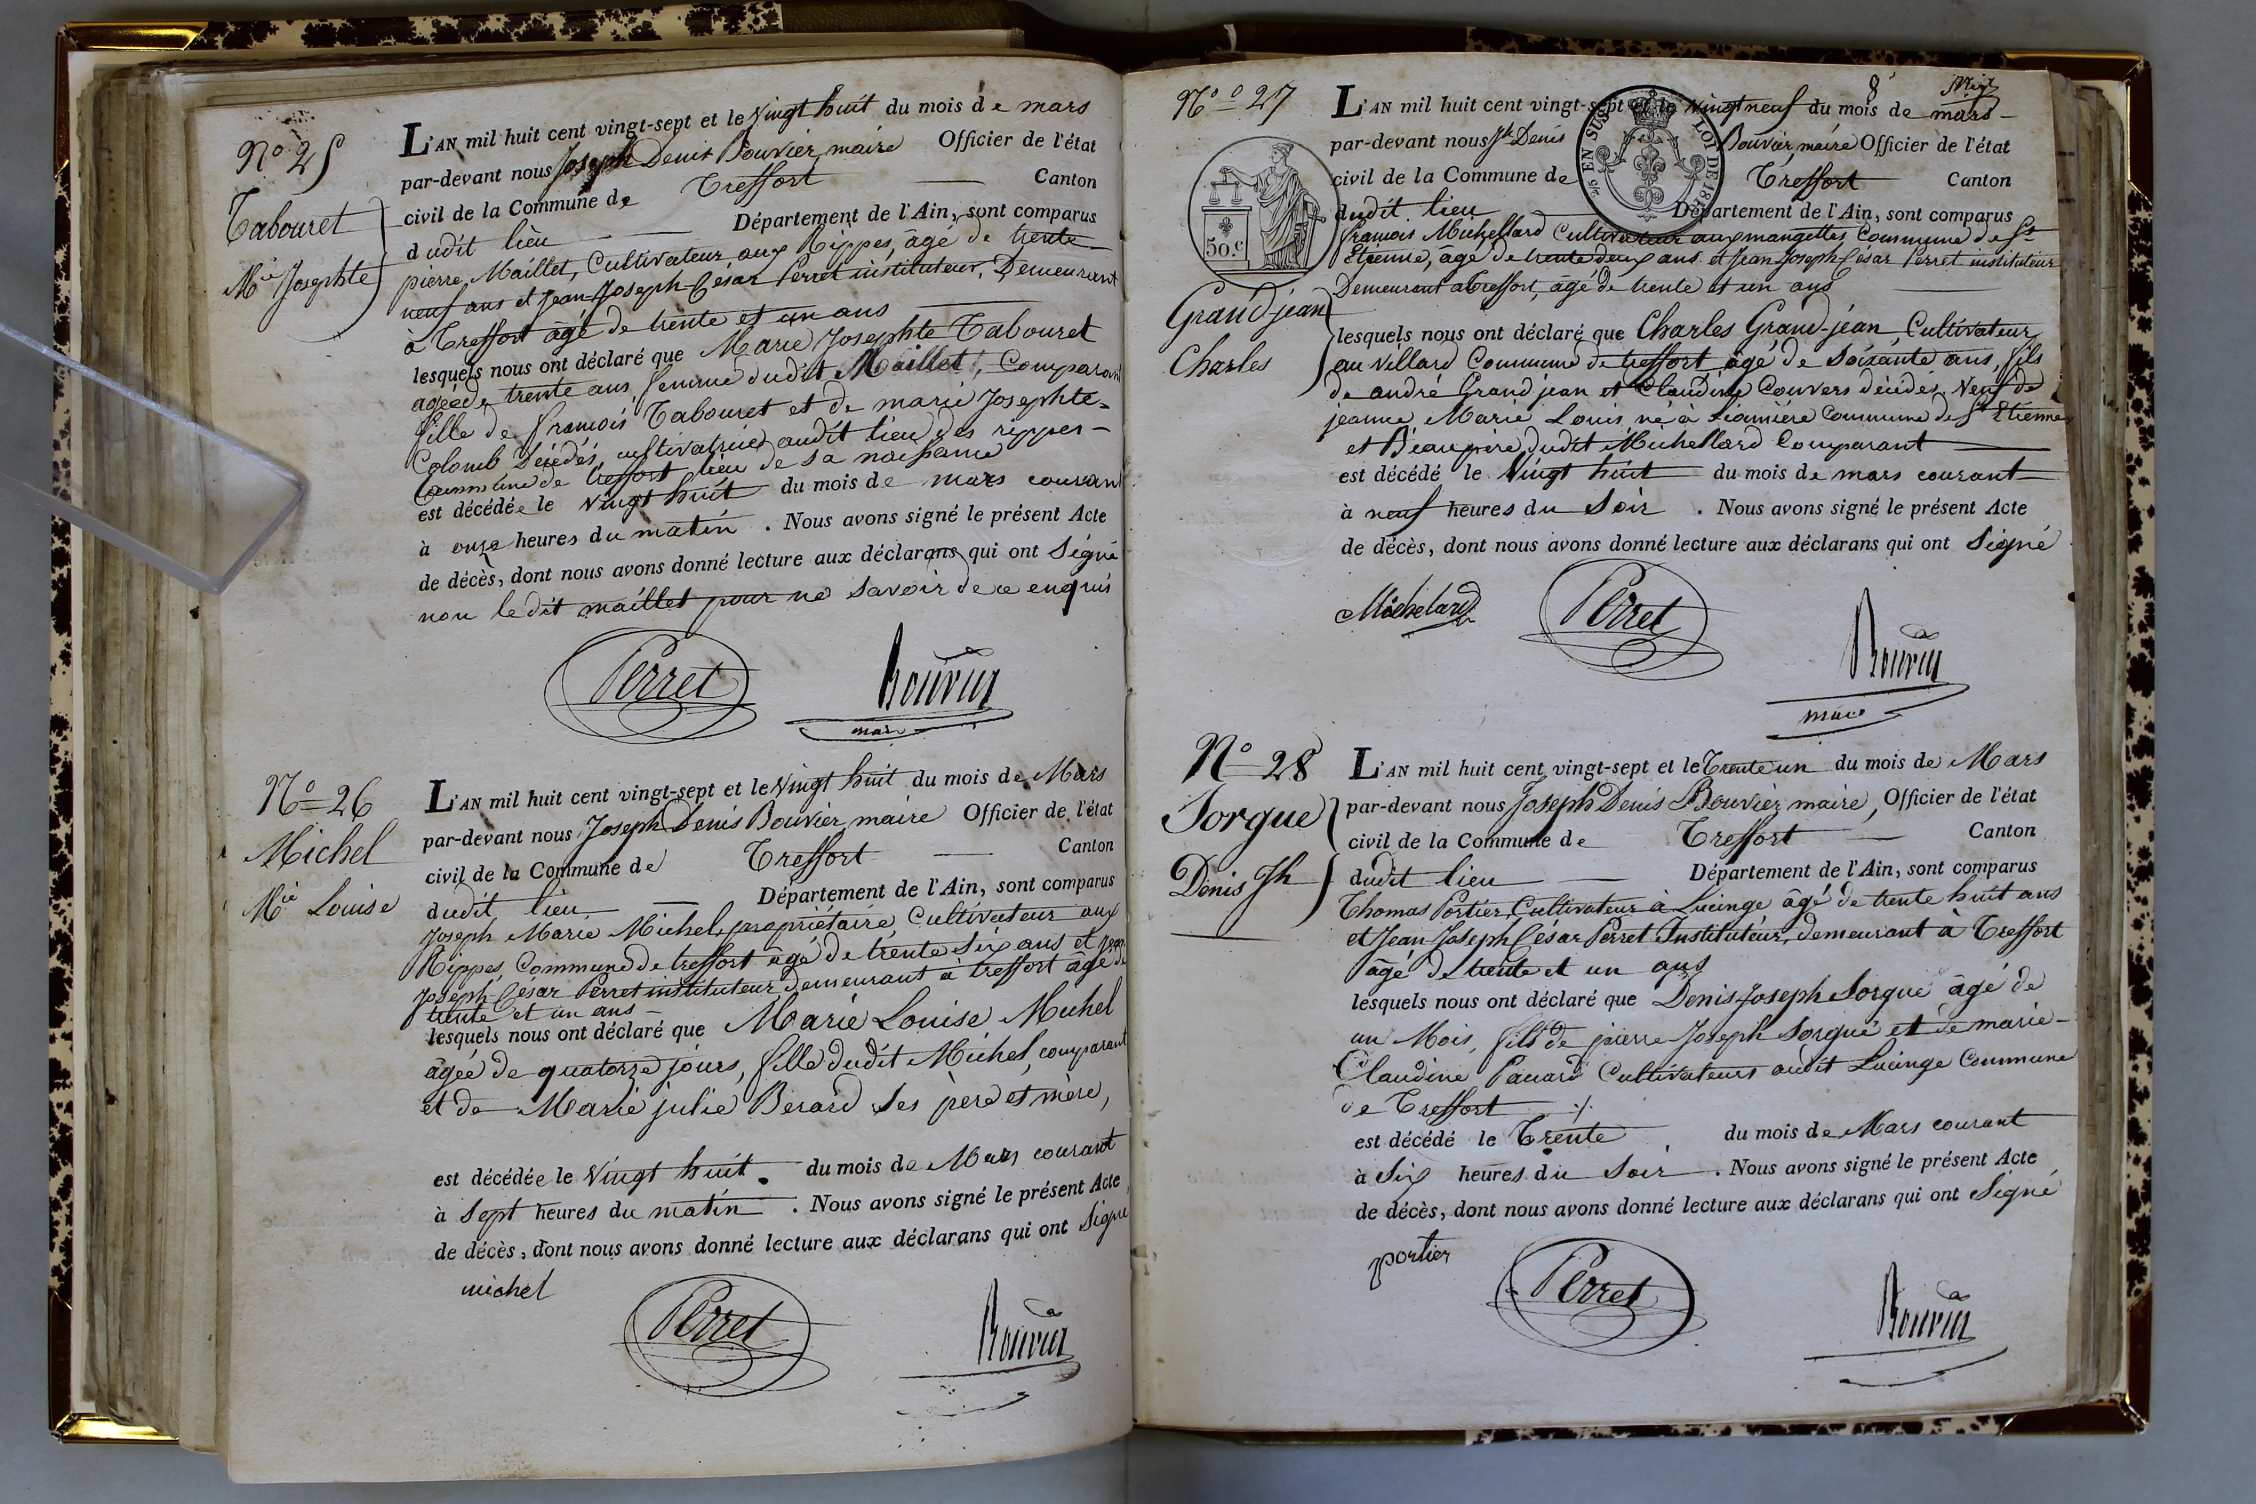 N° 25
Tabouret
Mie Josephte
L'AN mil huit cent vingt-sept et le vingt huit du mois de mars
par-devant nous Joseph Denis Bouvier, maire Officier de l'état
civil de la Commune de Treffort Canton
dudit lieu Département de l'Ain, sont comparus
pierre Maillet, Cultivateur aux Rippes, âgé de trente
neuf ans et Jean Joseph César Perret instituteur, Demeurant
à Treffort âgé de trente et un ans
lesquels nous ont déclaré que Marie Josephte Tabouret
agée de trente ans, femme dudit Maillet, Comparant
fille de françois Tabouret et de marie Josephte
Colomb Décédés, cultivatrice audit lieu des rippes
Commune de treffort lieu de sa naissance
est décédée le vingt huit du mois de mars courant
à onze heures du matin . Nous avons signé le présent Acte
de décès, dont nous avons donné lecture aux déclarans qui ont Signé
non le dit maillet pour ne savoir de ce enquis
Perret Bouvier
maire
N° 26
Michel
Mie Louise
L'AN mil huit cent vingt-sept et le Vingt huit du mois de Mars
par-devant nous Joseph Denis Bouvier, maire Officier de l'état
civil de la Commune de Treffort Canton
dudit lieu Département de l'Ain, sont comparus
Joseph Marie Michel, propriétaire, Cultivateur aux
Rippes, Commune de treffort âgé de trente six ans et Jean
Joseph César Perret instituteur demeurant à treffort âgé de
trente et un ans
lesquels nous ont déclaré que Marie Louise Michel
âgée de quatorze jours, fille dudit Michel, comparant
et de Marie julie Berard ses père et mère,
est décédée le Vingt huit du mois de Mars courant
à Sept heures du matin . Nous avons signé le présent Acte
de décès, dont nous avons donné lecture aux déclarans qui ont Signé
michel
Perret Bouvier
8
N° 27
Grand-jean
Charles
50 c
EN SUS LOI DE
L'AN mil huit cent vingt-sept et le vingt neuf du mois de mars
par-devant nous Jh Denis Bouvier, maire Officier de l'état
civil de la Commune de Treffort Canton
dudit lieu Département de l'Ain, sont comparus
françois Michellard Cultivateur aux mangettes Commune de St
Etienne, âgé de trente deux ans et Jean Joseph César Perret instituteur
Demeurant à Treffort, âgé de trente et un ans
lesquels nous ont déclaré que Charles Grand-jean, Cultivateur
au Villard Commune de treffort âgé de Soixante ans, fils
de andré Grand jean et Claudine Couvers décédés, Veuf de
jeanne Marie Louis né à Commune de St Etienne
et Beaupère dudit Michellard Comparant
est décédé le Vingt huit du mois de mars courant
à neuf heures du Soir . Nous avons signé le présent Acte
de décès, dont nous avons donné lecture aux déclarans qui ont Signé
Michelard Perret Bouvier
maire
N° 28
Sorgue
Denis Jh
L'AN mil huit cent vingt-sept et le Trente un du mois de Mars
par-devant nous Joseph Denis Bouvier maire, Officier de l'état
civil de la Commune de Treffort Canton
dudit lieu Département de l'Ain, sont comparus
Thomas Portier, Cultivateur à Lucinge âgé de trente huit ans
et Jean Joseph César Perret Instituteur, demeurant à Treffort
âgé de trente et un ans
lesquels nous ont déclaré que Denis Joseph Sorgue âgé de
un Mois, fils de pierre Joseph Sorgue et de marie
Claudine Pauard Cultivateurs audit Lucinge Commune
de Treffort
est décédé le Trente du mois de Mars courant
à Six heures du Soir . Nous avons signé le présent Acte
de décès, dont nous avons donné lecture aux déclarans qui ont Signé
portier
Perret Bouvier